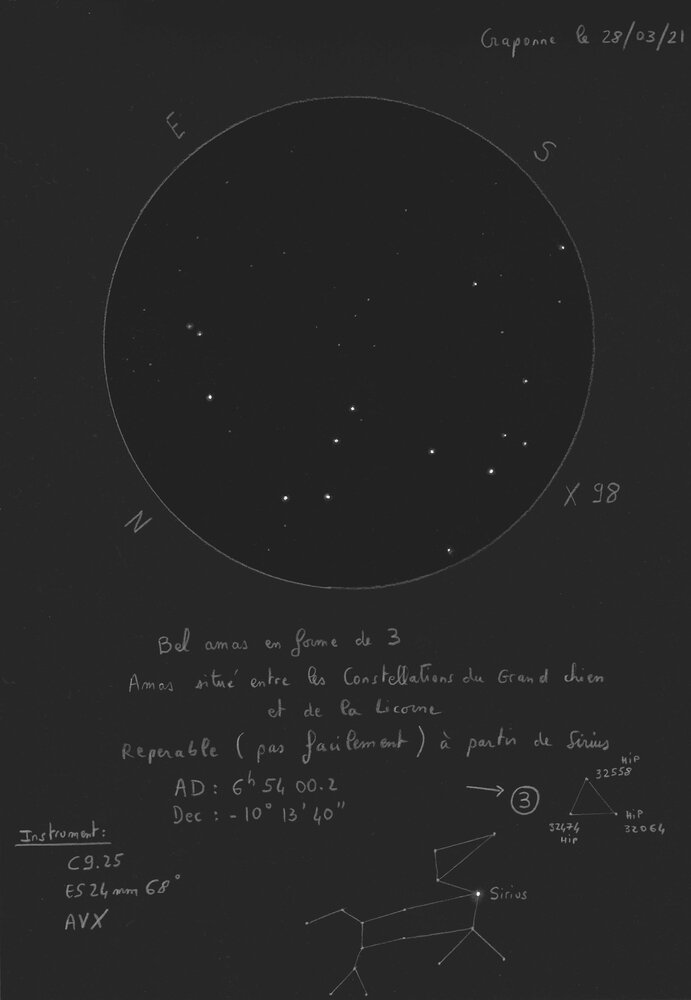 Craponne le 28/03/21
E
S
N
X 98
Bel amas en forme de 3
Amas situé entre les Constellations du Grand chien
et de la Licorne
Reperable (pas facilement) à partir de Sirius
AD : 6h 54 00.2
Dec : -10° 13' 40"
→ 3
HiP
32558
32474
HiP
HiP
32064
Instrument :
C9.25
ES 24 mm 68°
AVX
Sirius